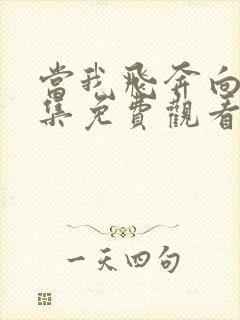 當我飛奔向
集免費觀看
一天四句